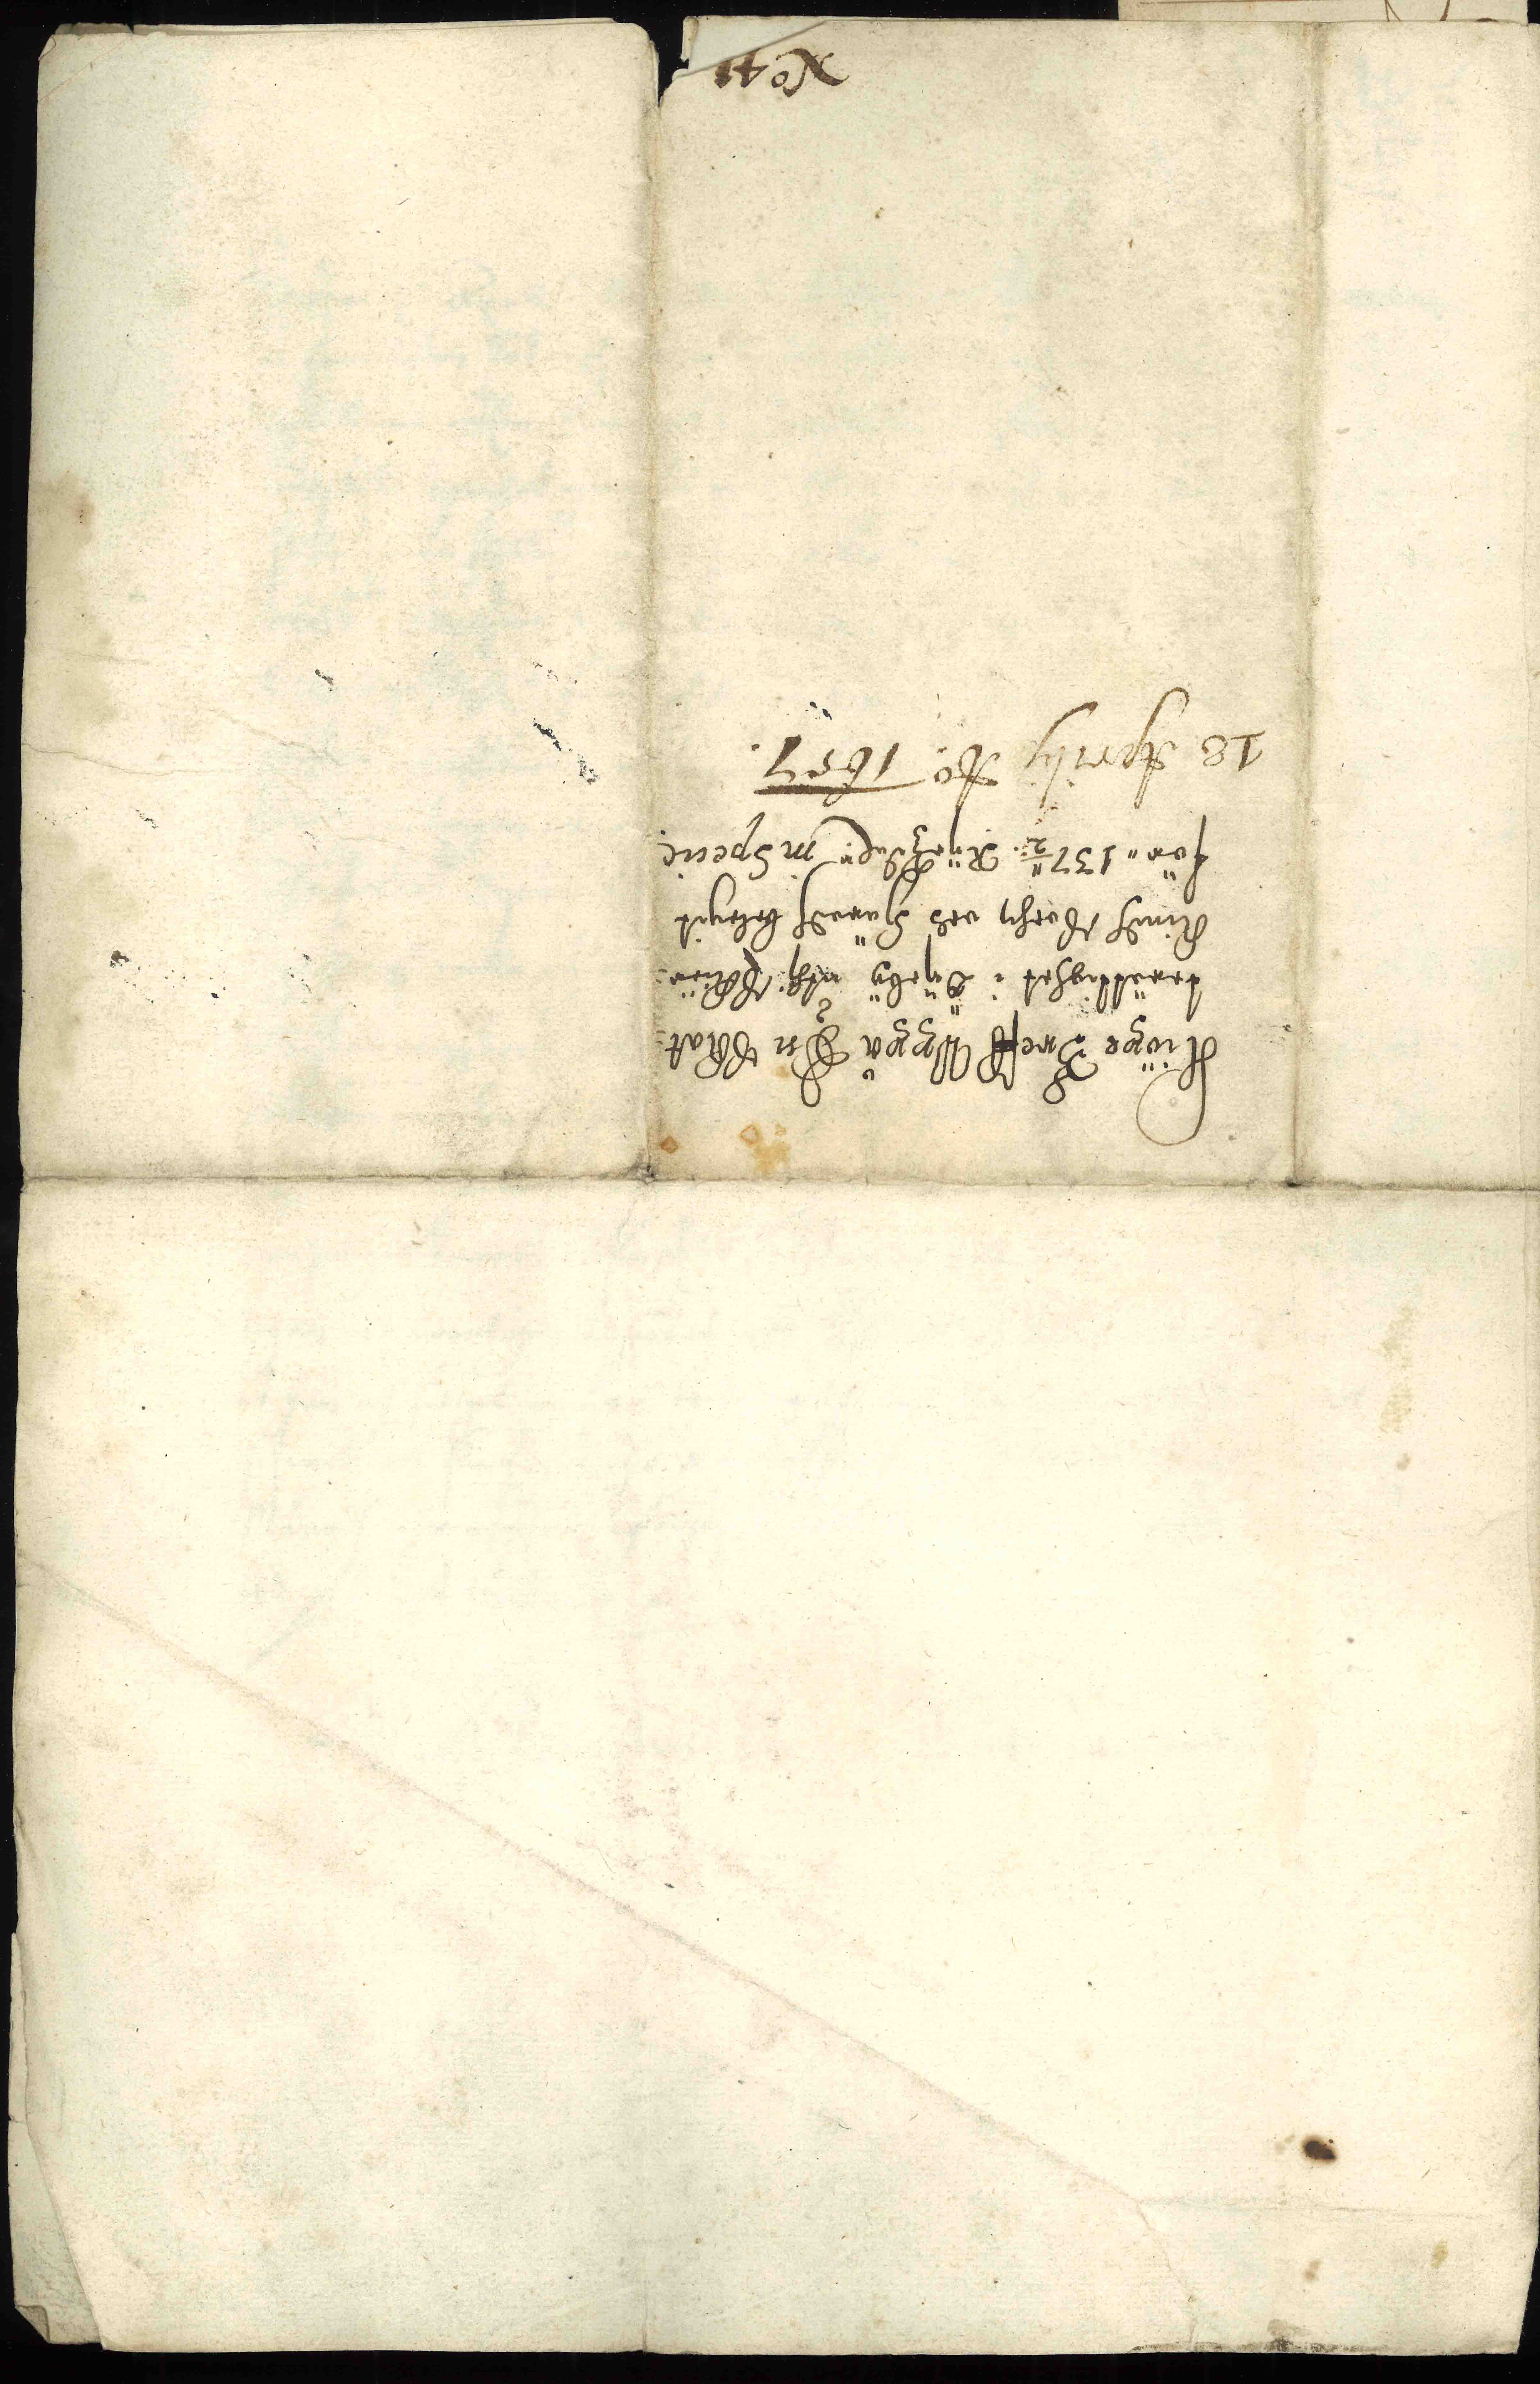 Kiöpe Breff Uppå En Skat=
terättighet i Öÿeby uthj Skier=
kindh Sochn och Häradh belegit
för " 137 ½: Rÿckzdalr in Specie.
18 Aprilij Ao. 1657.
No 41